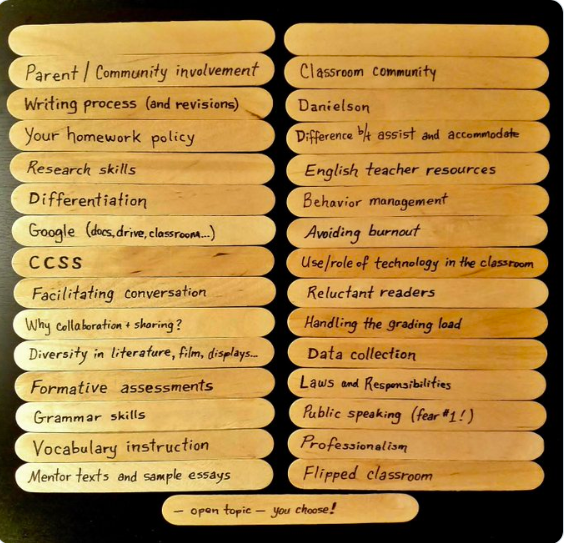 Parent / Community involvement
Writing process (and revisions)
Your homework policy
Research skills
Differentiation
Google (docs, drive, classroom...)
CCSS
Facilitating conversation
Why collaboration + sharing?
Diversity in literature, film, displays...
Formative assessments
Grammar skills
Vocabulary instruction
Mentor texts and sample essays
Classroom community
Danielson
Difference b/t assist and accommodate
English teacher resources
Behavior management
Avoiding burnout
Use/role of technology in the classroom
Reluctant readers
Handling the grading load
Data collection
Laws and Responsibilities
Public speaking (fear #1!)
Professionalism
Flipped classroom
— open topic — you choose!